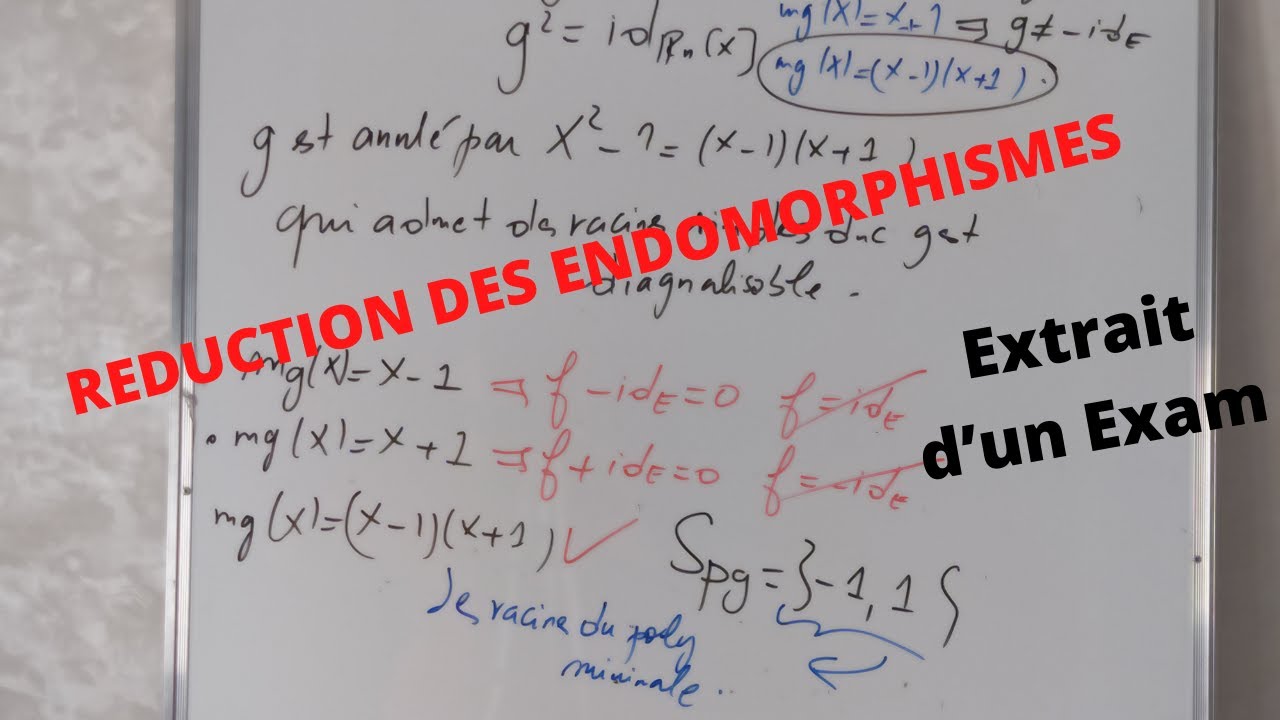 mg(x)=x+1 ⇒ g≠-id_E
g²=id_ℝn[x]
mg(x)=(x-1)(x+1).
g est annlé par X²-1=(x-1)(x+1)
qui admet des racine duc g est
diagnalisable.
REDUCTION DES ENDOMORPHISMES
Extrait
d'un Exam
mg(x)=x-1 ⇒ f-id_E=0 f=id_E
• mg(x)=x+1 ⇒ f+id_E=0 f=-id_E
mg(x)=(x-1)(x+1) ✓
Spg=}-1,1{
des racine du poly
minimale.